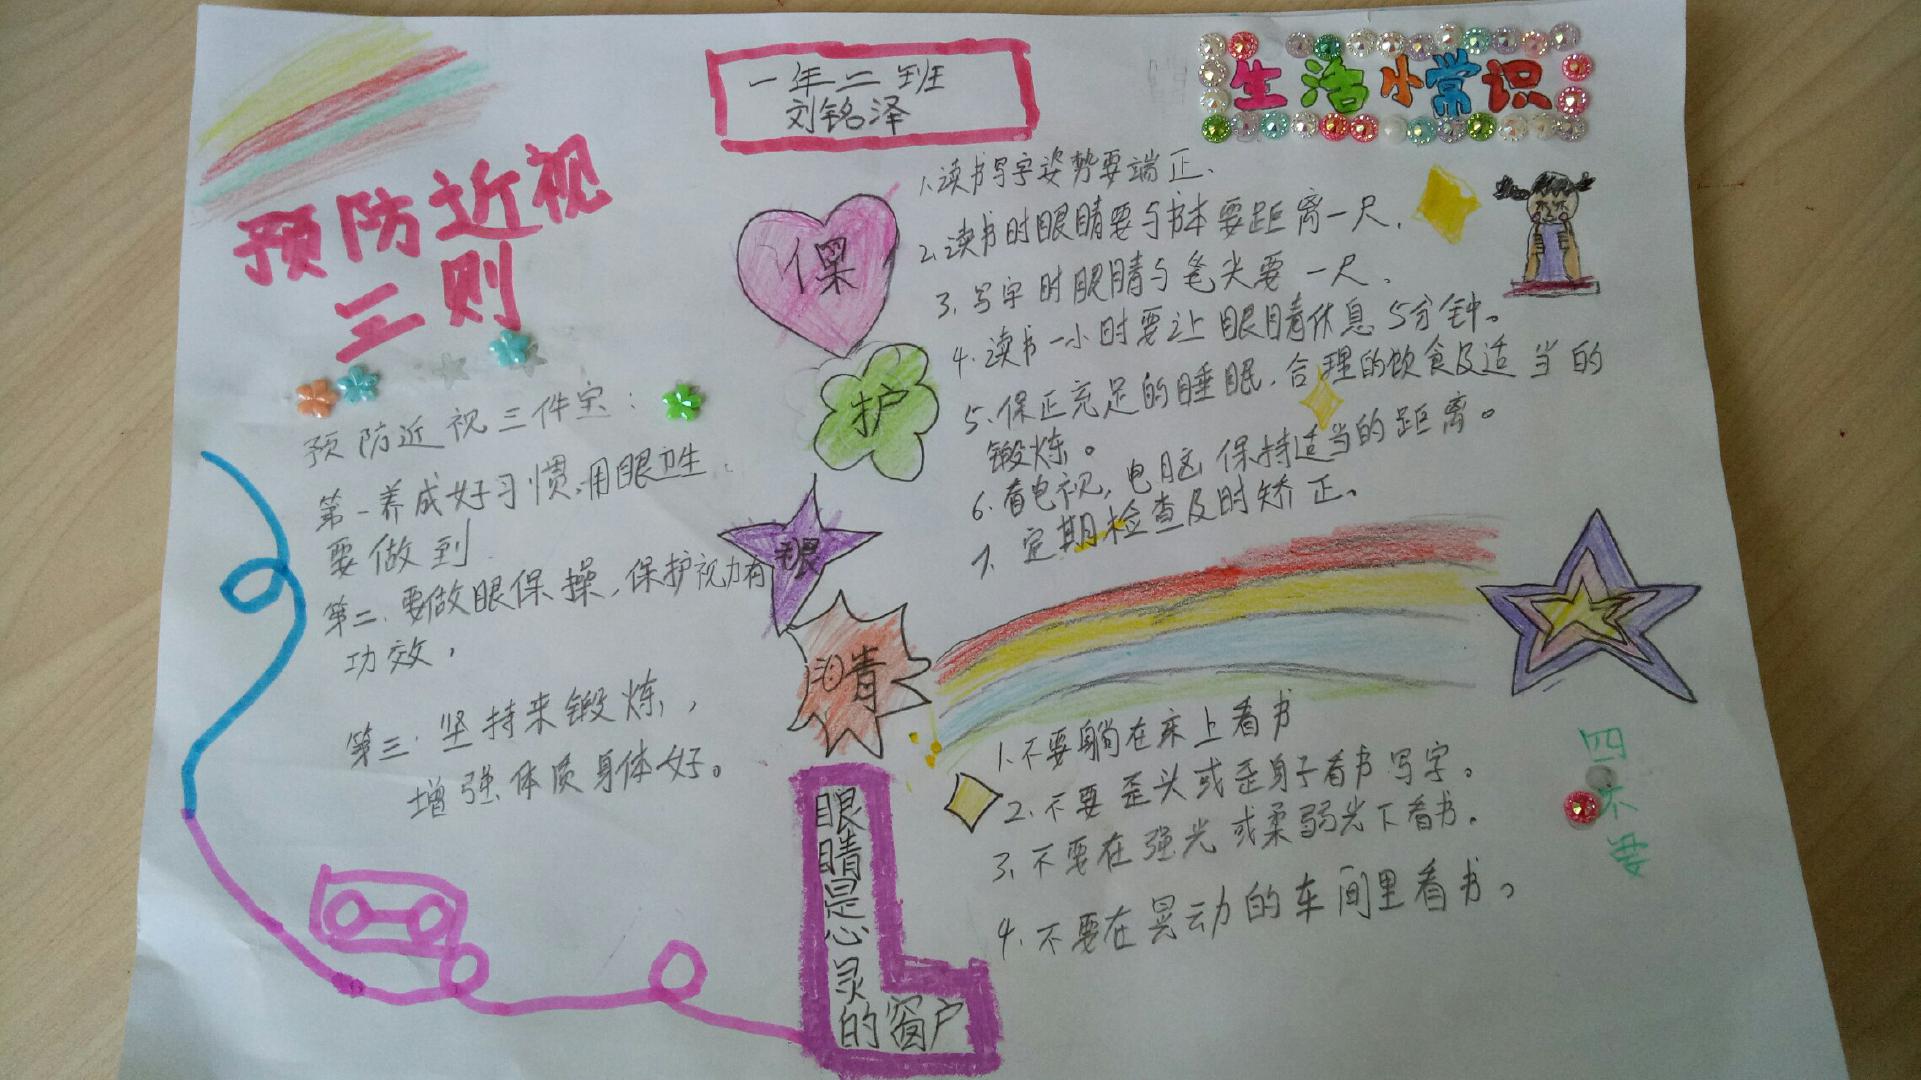 一年二班
刘铭泽
生活小常识
预防近视
三则
预防近视三件宝:
第一养成好习惯,用眼卫生
要做到
第二.要做眼保操,保护视力有
功效,
第三.坚持来锻炼,
增强体质身体好。
保
护
眼
睛
眼睛是心灵的窗户
1.读书写字姿势要端正.
2.读书时眼睛要与书本要距离一尺.
3.写字时眼睛与笔尖要一尺.
4.读书一小时要让眼睛休息5分钟。
5.保正充足的睡眠.合理的饮食及适当的
锻炼。
6.看电视,电脑保持适当的距离。
7.定期检查及时矫正.
1.不要躺在床上看书
2.不要歪头或歪身子看书写字。
3.不要在强光或柔弱光下看书.
4.不要在晃动的车间里看书。
四不要